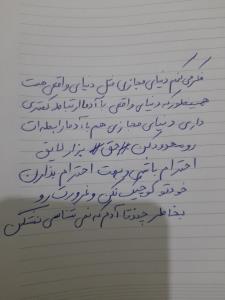 فکر می کنم دنیای مجازی مثل دنیای واقعی هست
همینطور که دنیای واقعی با آدما ارتباط کمتری
داری دنیای مجازی هم با آدما رابطه ات
رو محدود کن #حق# بزار لایق
احترام باشی و بهت احترام بذارن
خودتو کوچیک نکن و غرورت رو
بخاطر چندتا آدم که نمی شناسی نشکن